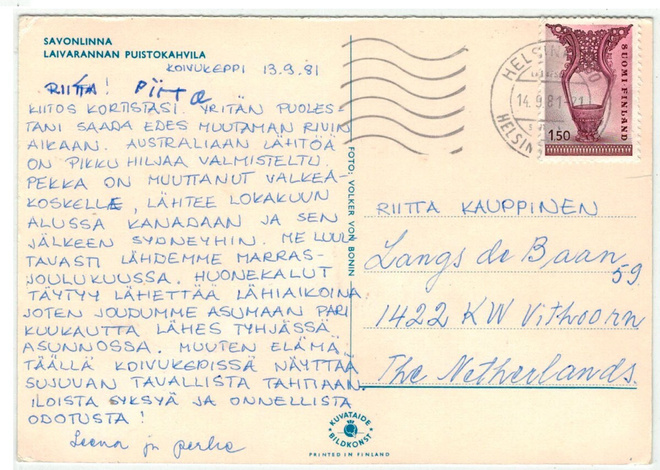 SAVONLINNA
LAIVARANNAN PUISTOKAHVILA
KOIVUKEPPI 13.9.81
RIITTA! Piita
KIITOS KORTISTASI. YRITÄN PUOLES-
TANI SAADA EDES MUUTAMAN RIVIN
AIKAAN. AUSTRALIAAN LÄHTÖÄ
ON PIKKU HILJAA VALMISTELTU.
PEKKA ON MUUTTANUT VALKEA-
KOSKELLE, LÄHTEE LOKAKUUN
ALUSSA KANADAAN JA SEN
JÄLKEEN SYDNEYHIN. ME LUUL-
TAVASTI LÄHDEMME MARRAS-
JOULUKUUSSA. HUONEKALUT
TÄYTYY LÄHETTÄÄ LÄHIAIKOINA
JOTEN JOUDUMME ASUMAAN PARI
KUUKAUTTA LÄHES TYHJÄSSÄ
ASUNNOSSA. MUUTEN ELÄMÄ
TÄÄLLÄ KOIVUKEPISSÄ NÄYTTÄÄ
SUJUVAN TAVALLISTA TAHTIAAN.
ILOISTA SYKSYÄ JA ONNELLISTA
ODOTUSTA!
Leena ja perhe
FOTO: VOLKER VON BONIN
HELSINKI
14.9.81-21
HELSIN
SUOMI FINLAND
1,50
RIITTA KAUPPINEN
Langs de Baan 59
1422 KW Vithoorn
The Netherlands.
KUVATAIDE
BILDKONST
PRINTED IN FINLAND